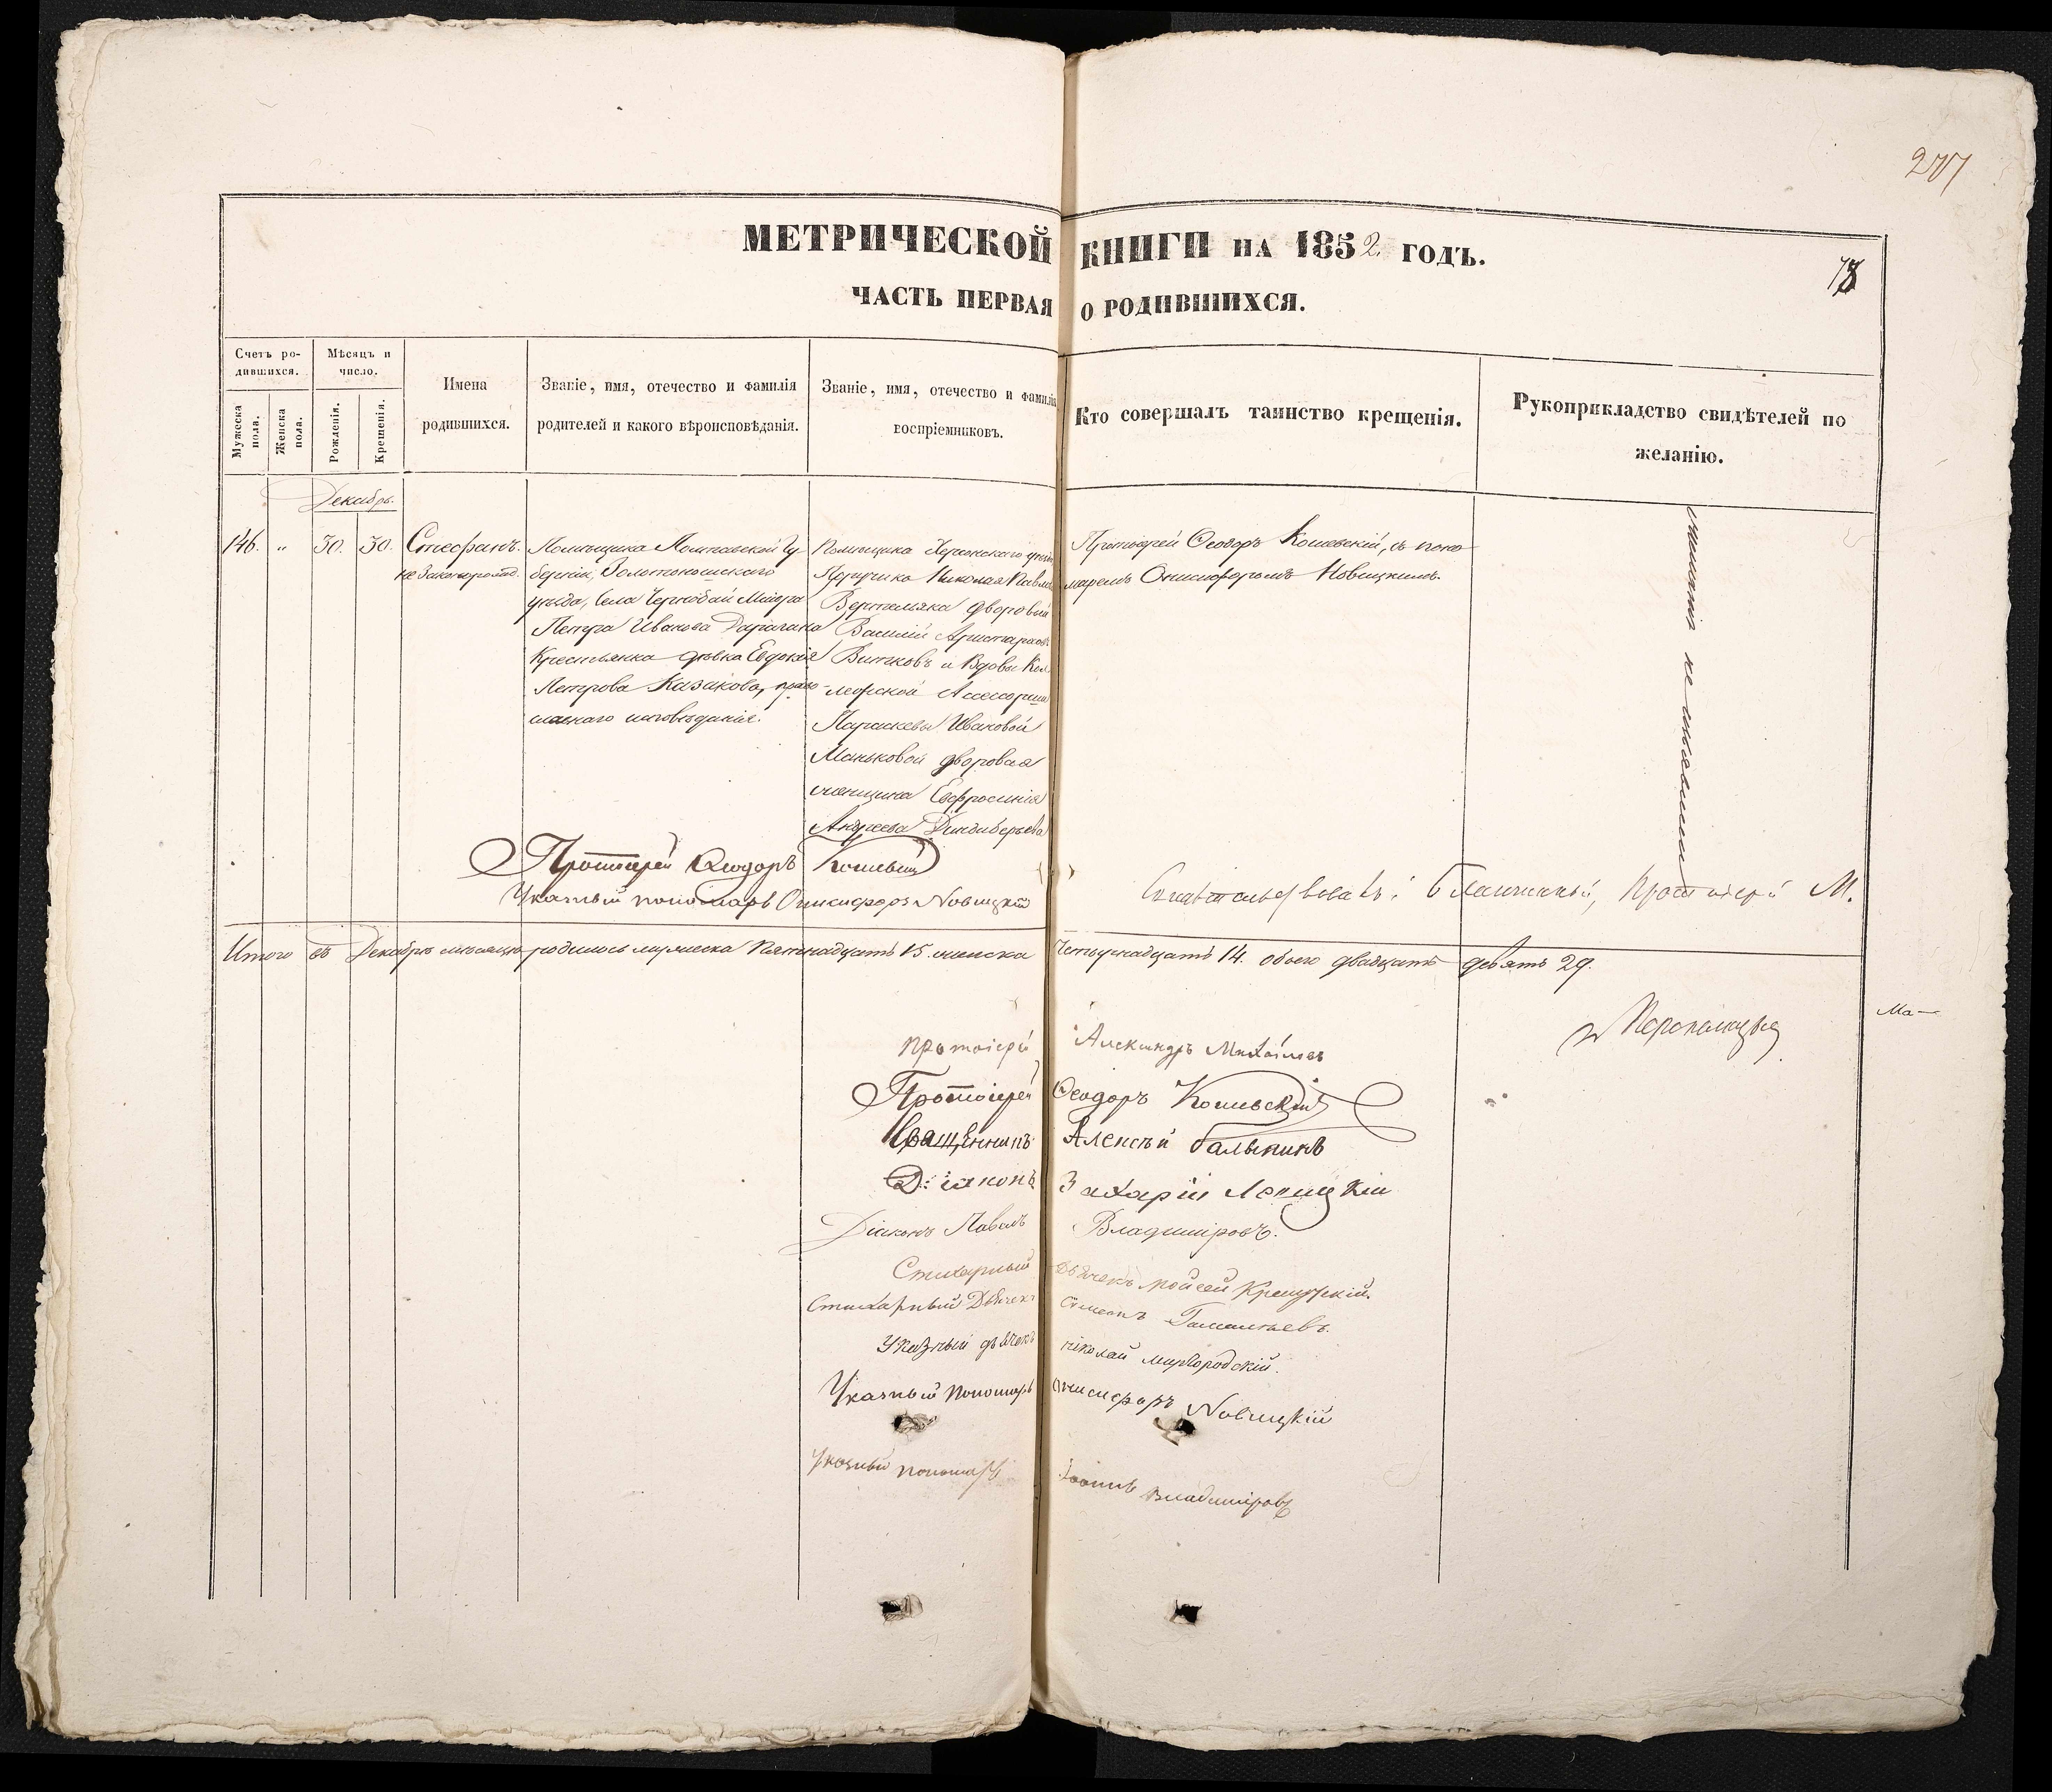 277
МЕТРИЧЕСКОЙ КНИГИ НА 1852. ГОДЪ.
78
ЧАСТЬ ПЕРВАЯ О РОДИВШИХСЯ.
Счетъ ро-
дившихся.
Мужеска пола.
Женска пола.
Мѣсяцъ и
число.
Рожденія.
Крещенія.
Имена
родившихся.
Званіе, имя, отечество и фамилія
родителей и какого вѣроисповѣданія.
Званіе, имя, отечество и фамилія
воспріемниковъ.
Кто совершалъ таинство крещенія.
Рукоприкладство свидѣтелей по
желанію.
Декабрь.
146. „ 30. 30. Стефанъ.
незаконорожд.
Помѣщика Полтавской Гу
берніи, Золотоношскаго
уѣзда, Села Чернобай Маіора
Петра Иванова Дарагана
Крестьянка дѣвка Евдокія
Петрова Казакова, право-
славнаго исповѣданія.
Помѣщика Херсонскаго уѣзда
Поручика Николая Павлова
Вертельяка дворовый
Василій Аристарховъ
Витковъ и Вдовы Кол
лежской Ассесорши
Параскевы Ивановой
Маньковой дворовая
женщина Евфросинія
Андреева
Протоіерей Ѳеодоръ Кошевскій, съ поно
маремъ Онисифоромъ Новицкимъ.
желанія не имѣли
Протоіерей Ѳеодоръ Кошевскій
Указный пономарь Онисифоръ Новицкій
Свидѣтельствовалъ: Благочинный, Протоіерей М.
Итого въ Декабрѣ мѣсяцѣ родилось мужеска пятнадцать 15. женска четырнадцать 14. обоего двадцать девять 29.
Протоіерей Александръ Михайловъ
Протоіерей Ѳеодоръ Кошевскій
Священникъ Алексѣй Балыкинъ
Діаконъ Захарій Лепицкій
Діаконъ Павелъ Владиміровъ.
Стихарный Дьячекъ Мойсей
Стихарный Дьячекъ Симеонъ
Указный дьячекъ Николай Миргородскій.
Указный Пономарь Онисифоръ Новицкій
Указный пономарь Іоаннъ Владиміровъ
Ма—